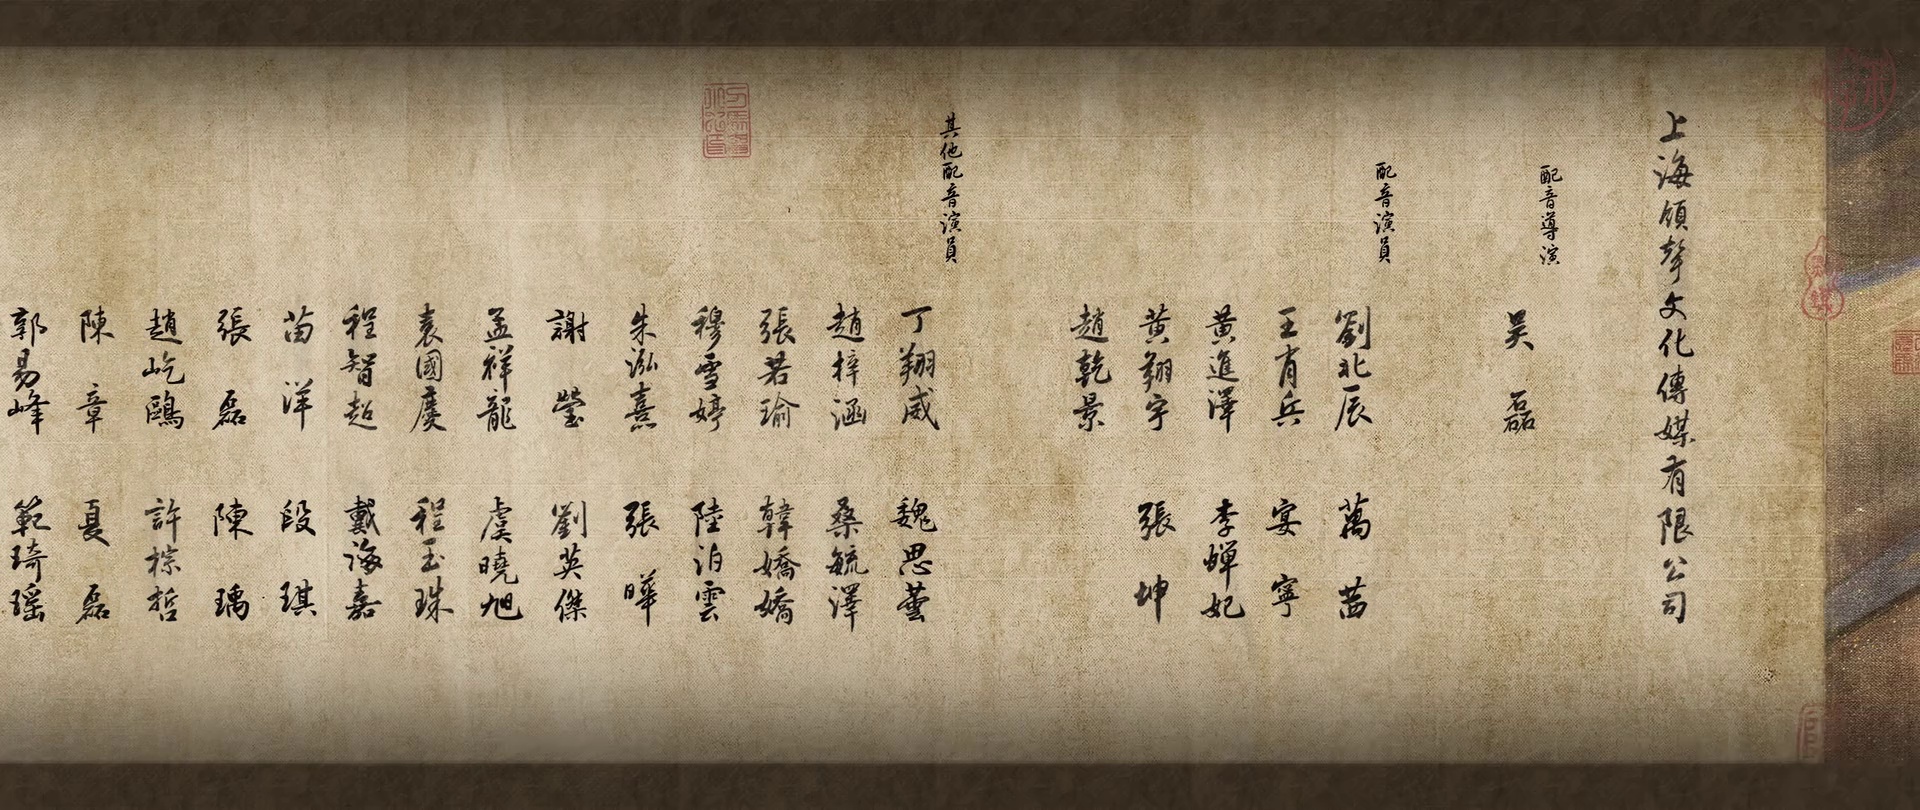 上海領聲文化傳媒有限公司
配音導演
吴磊
配音演員
劉北辰
萬茜
王肖兵
宴寧
黄進澤
李蟬妃
黄翔宇
張坤
趙乾景
其他配音演員
丁翔威
魏思蕓
趙梓涵
桑毓澤
張若瑜
韓嬌嬌
穆雪婷
陸泊雲
朱泓熹
張曄
謝瑩
劉英傑
孟祥龍
虞曉旭
袁國慶
程玉珠
程智超
戴海嘉
苗洋
段琪
張磊
陳瑀
趙屹鷗
許棕哲
陳章
夏磊
郭易峰
範琦瑶